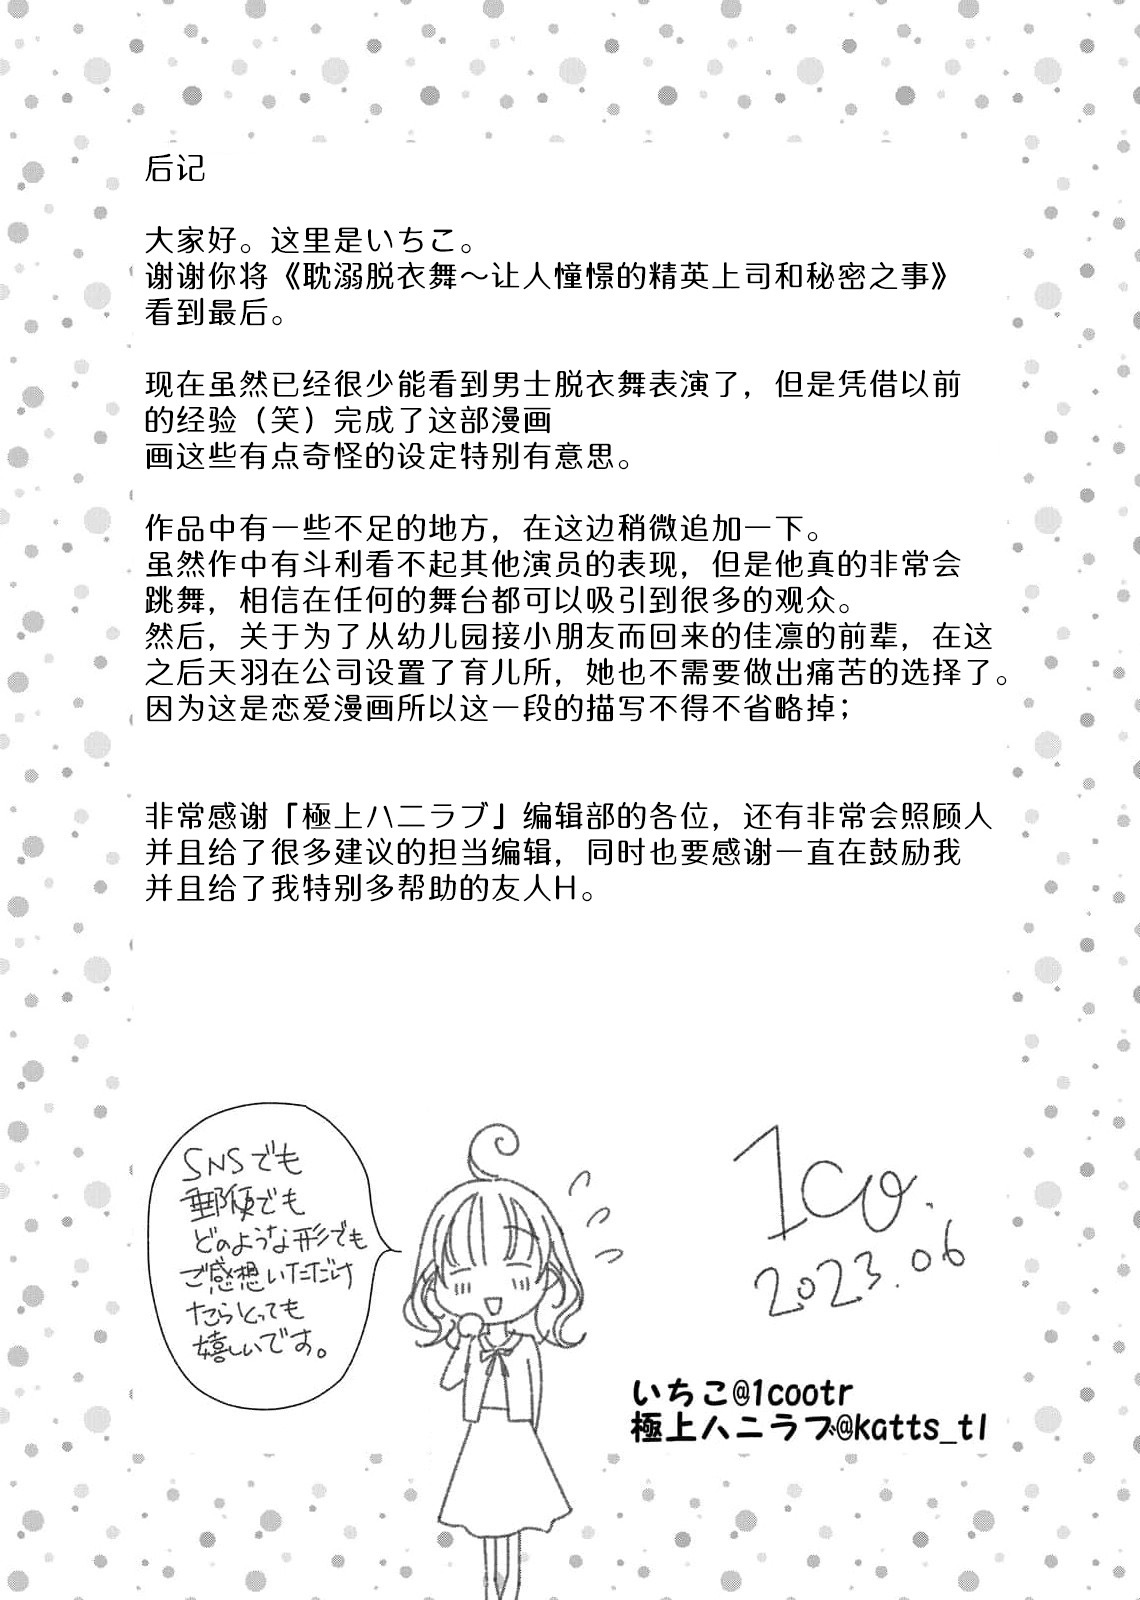 后记
大家好。这里是いちこ。
谢谢你将《耽溺脱衣舞～让人憧憬的精英上司和秘密之事》
看到最后。
现在虽然已经很少能看到男士脱衣舞表演了，但是凭借以前
的经验（笑）完成了这部漫画
画这些有点奇怪的设定特别有意思。
作品中有一些不足的地方，在这边稍微追加一下。
虽然作中有斗利看不起其他演员的表现，但是他真的非常会
跳舞，相信在任何的舞台都可以吸引到很多的观众。
然后，关于为了从幼儿园接小朋友而回来的佳凛的前辈，在这
之后天羽在公司设置了育儿所，她也不需要做出痛苦的选择了。
因为这是恋爱漫画所以这一段的描写不得不省略掉；
非常感谢「極上ハニラブ」编辑部的各位，还有非常会照顾人
并且给了很多建议的担当编辑，同时也要感谢一直在鼓励我
并且给了我特别多帮助的友人H。
SNSでも
郵便でも
どのような形でも
ご感想いただけ
たらとっても
嬉しいです。
1co.
2023.06
いちこ@1cootr
極上ハニラブ@katts_tl